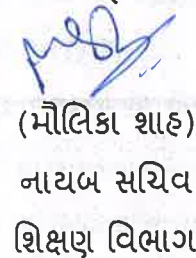 (મૌલિકા શાહ)
નાયબ સચિવ
શિક્ષણ વિભાગ